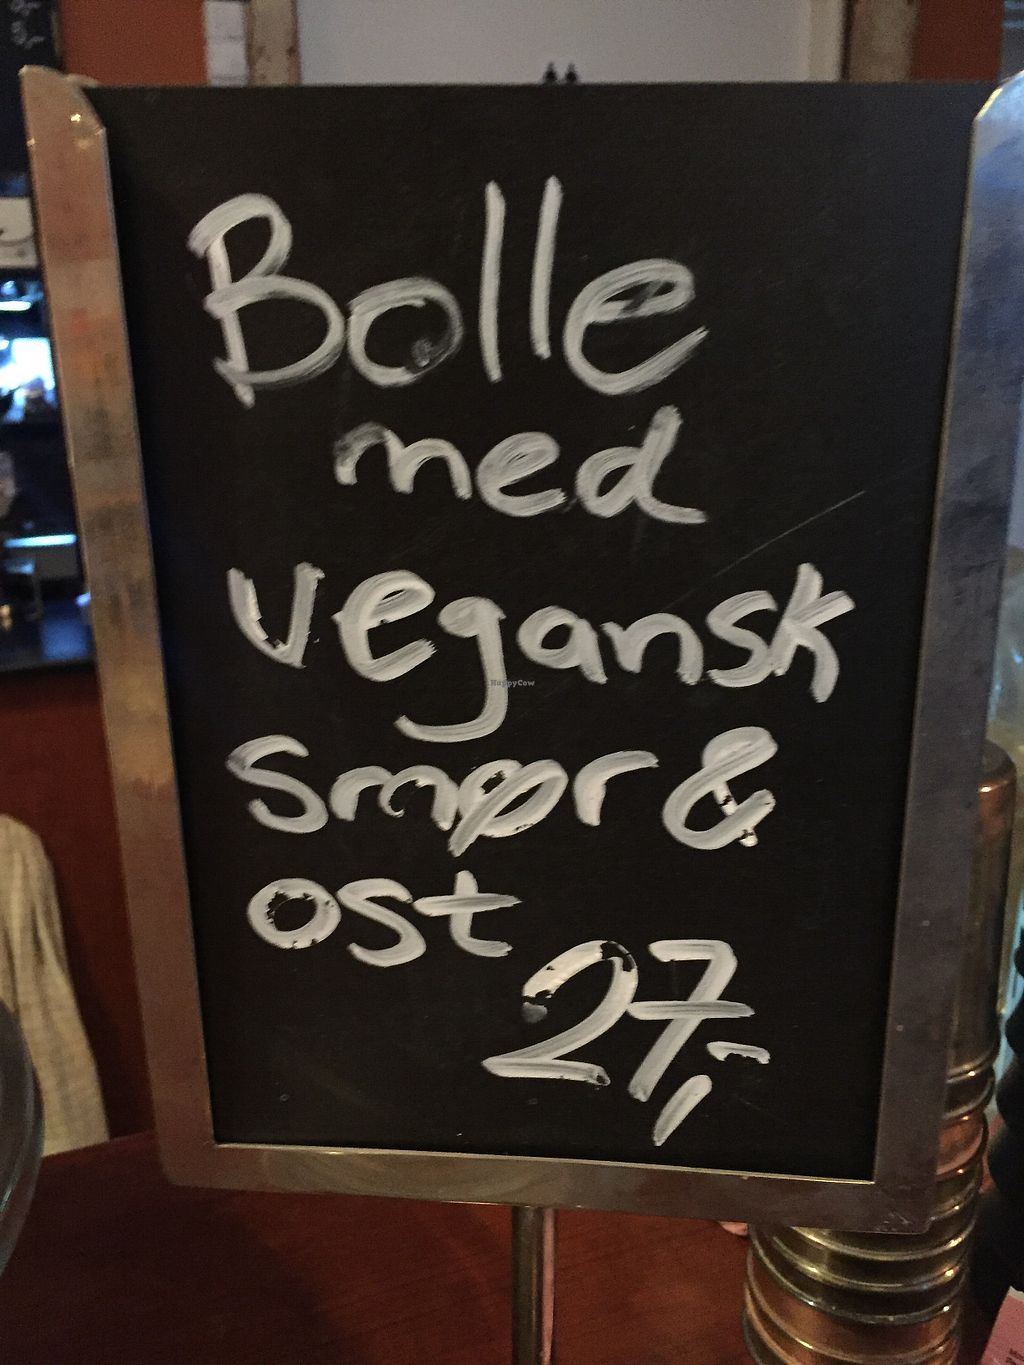 Bolle
med
vegansk
smør &
ost
27,-
HappyCow